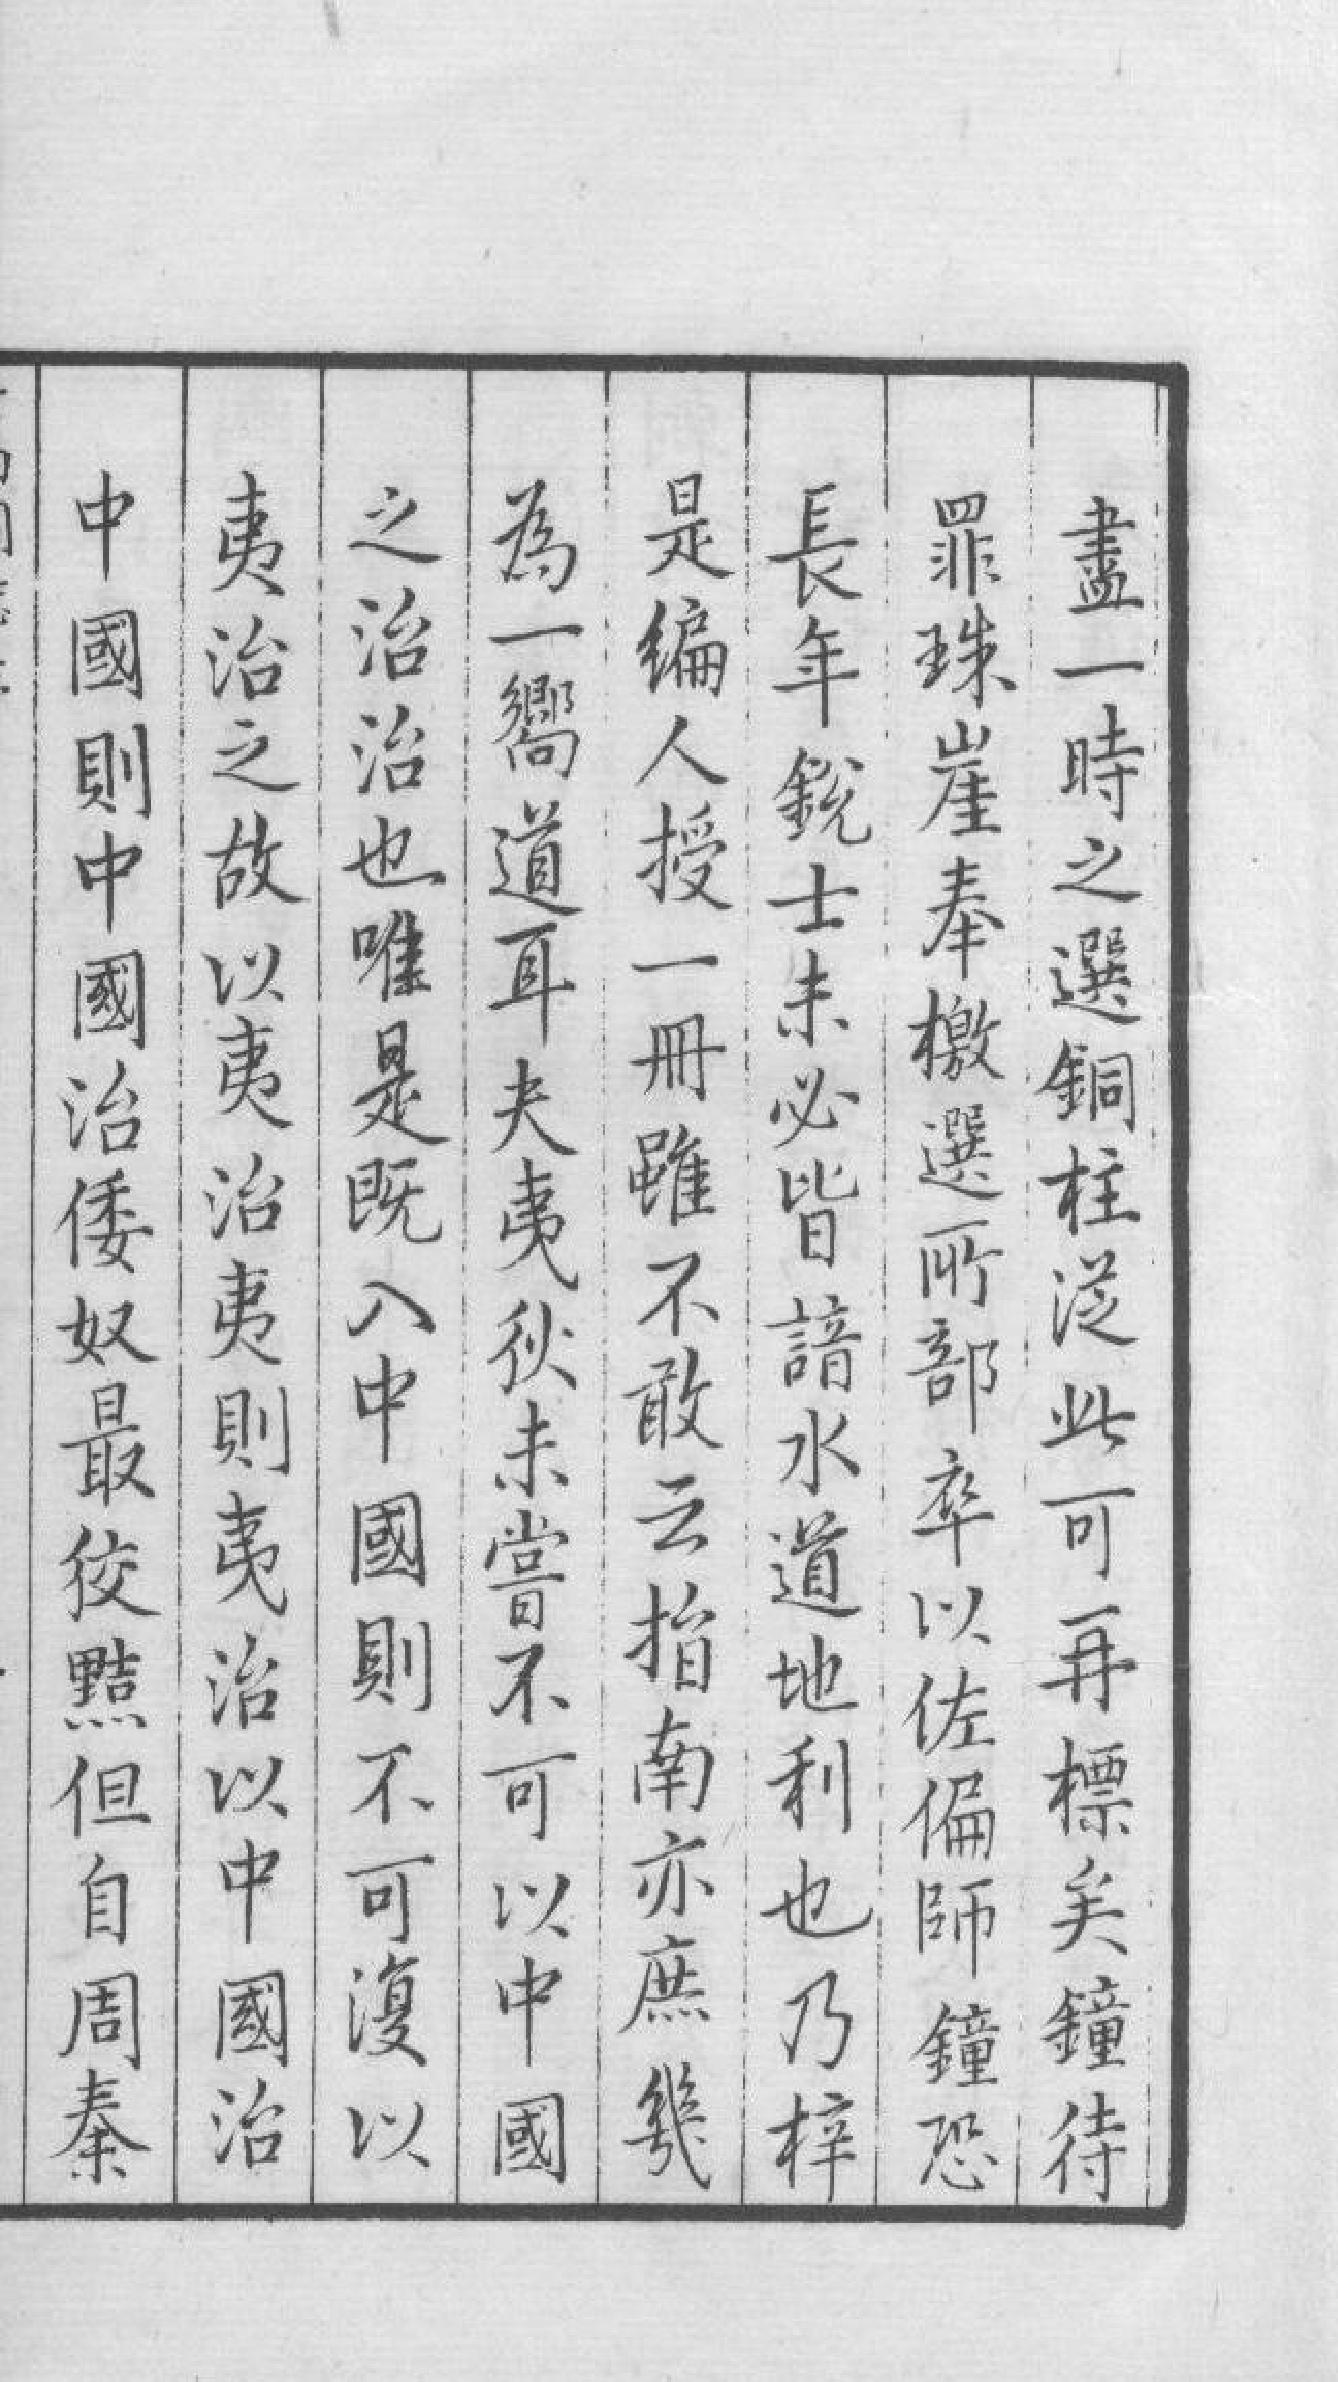 盡一時之選銅柱從此可再標矣鐘待
罪珠崖奉檄選所部卒以佐偏師鐘恐
長年銳士未必皆諳水道地利也乃梓
是編人授一冊雖不敢云指南亦庶幾
為一嚮道耳夫夷狄未嘗不可以中國
之治治也唯是既入中國則不可復以
夷治之故以夷治夷則夷治以中國治
中國則中國治倭奴最狡黠但自周秦